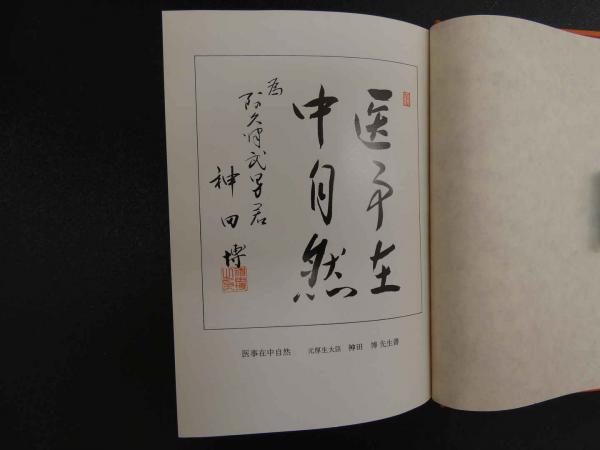 医事在
中自然
為
阿久津武男君
神田博
医事在中自然　元厚生大臣　神田　博先生書